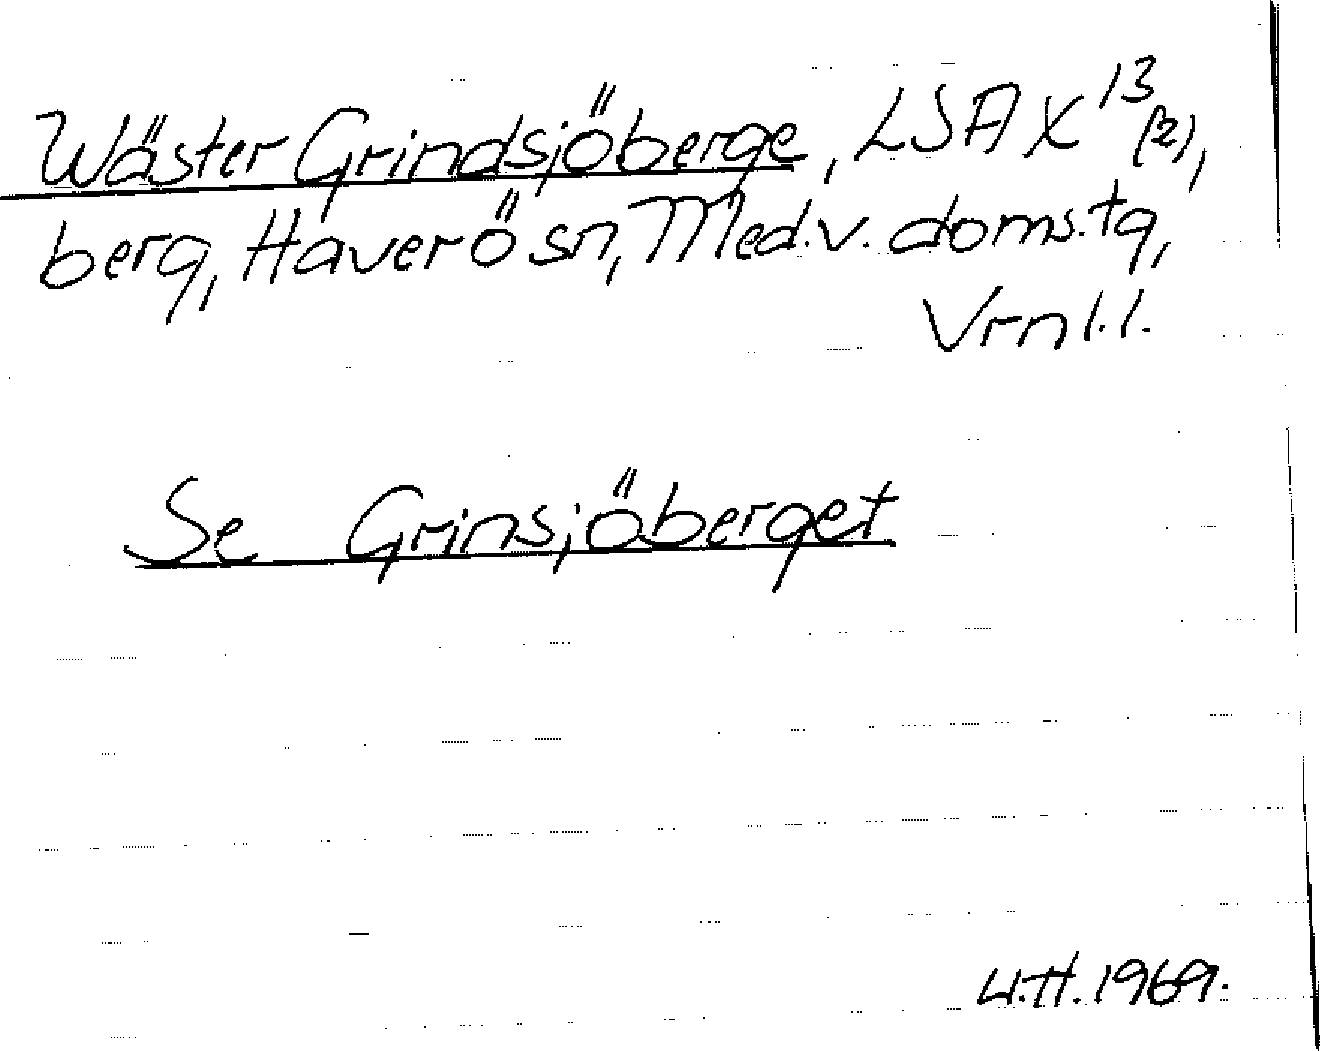 Wäster Grindsjöberge, LSA X 13 (2),
berg, Haverö sn, Med.v. doms.tg,
Vrnl.l.
Se Grinsjöberget
U.H. 1969.